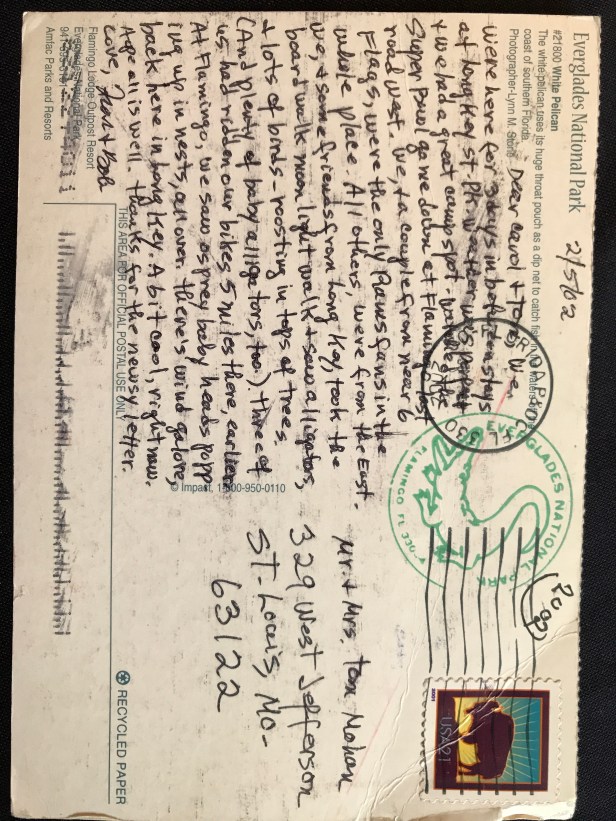 Everglades National Park
#21800 White Pelican
The white pelican uses its huge throat pouch as a dip net to catch fish in the waters
coast of southern Florida.
Photographer-Lynn M. Stone
2/5/02
Dear Carol + Tom, When
were here for 3 days in between stays
at Long Key St. Pk. Weather was perfect
+ we had a great camp spot. Watched the
Super Bowl game down at Flamingo last
road west. We, + a couple from near 6
Flags, were the only Rams fans in the
whole place. All others, were from the East.
We, + some friends from Long Key, took the
board walk moon light walk + saw alligators,
+ lots of birds - roosting in tops of trees.
(And plenty of baby alligators, too.) Three of
us had ridden our bikes 5 miles there, earlier
At Flamingo, we saw osprey baby heads popp
ing up in nests, all over. There's wind galore,
back here in Long Key. A bit cool, right now.
Hope all is well. Thanks for the newsy letter.
Love,
+ Bob
Flamingo Lodge Outpost Resort
Everglades National Park
Amfac Parks and Resorts
THIS AREA FOR OFFICIAL POSTAL USE ONLY
© Impact, 1-800-950-0110
EVERGLADES NATIONAL PARK
FLAMINGO FL
USA21
2001
Mr. + Mrs. Tom Mohan
329 West Jefferson
St. Louis, Mo-
63122
RECYCLED PAPER